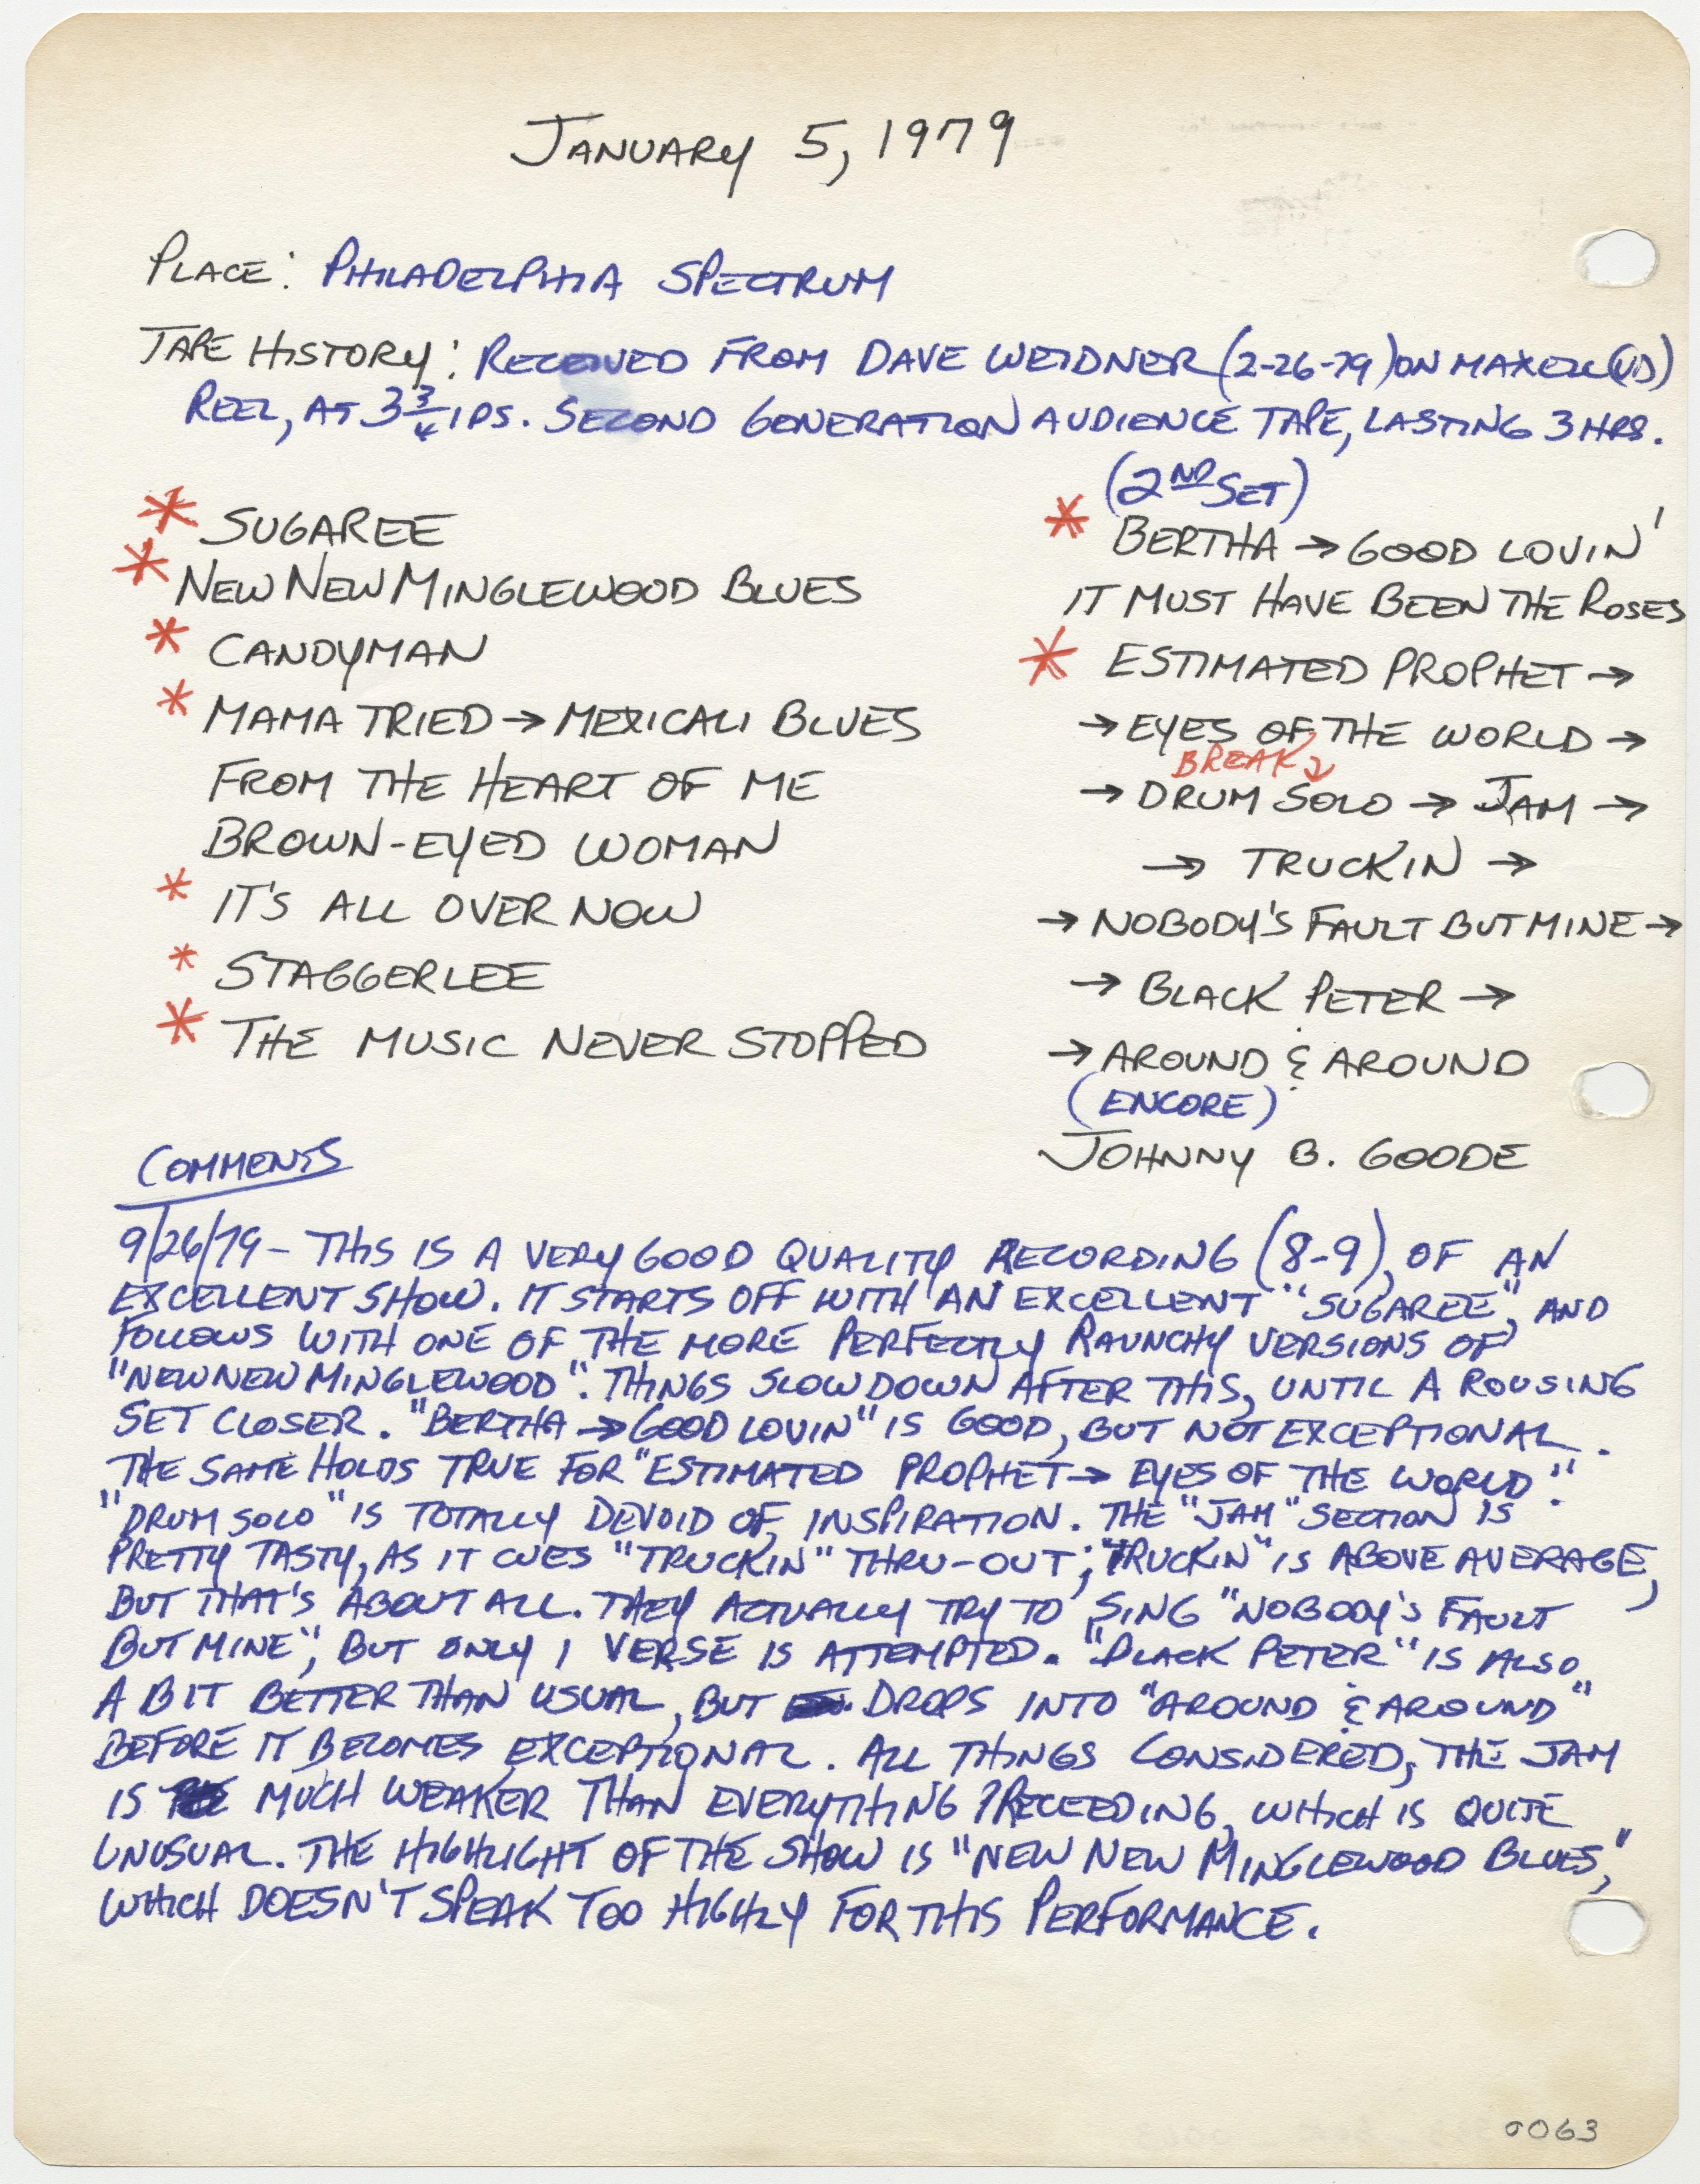 January 5, 1979
Place: Philadelphia Spectrum
Tape History: Received from Dave Weidner (2-26-79) on Maxell (UD)
Reel, at 3 3/4 ips. Second generation audience tape, lasting 3 hrs.
* Sugaree
* New New Minglewood Blues
* Candyman
* Mama Tried → Mexicali Blues
From the Heart of Me
Brown-Eyed Woman
* It's All Over Now
* Staggerlee
* The Music Never Stopped
(2nd Set)
* Bertha → Good Lovin'
It Must Have Been the Roses
* Estimated Prophet →
→ Eyes of the World →
Break
→ Drum Solo → Jam →
→ Truckin →
→ Nobody's Fault But Mine →
→ Black Peter →
→ Around & Around
(Encore)
Johnny B. Goode
Comments
9/26/79 – This is a very good quality recording (8-9), of an
excellent show. It starts off with an excellent "Sugaree", and
follows with one of the more perfectly raunchy versions of
"New New Minglewood". Things slow down after this, until a rousing
set closer. "Bertha → Good Lovin" is good, but not exceptional.
The same holds true for "Estimated Prophet → Eyes of the World".
"Drum Solo" is totally devoid of inspiration. The "Jam" section is
pretty tasty, as it cues "Truckin" thru-out; "Truckin" is above average,
but that's about all. They actually try to sing "Nobody's Fault
But Mine", but only 1 verse is attempted. "Black Peter" is also
a bit better than usual, but drops into "Around & Around"
before it becomes exceptional. All things considered, the jam
is much weaker than everything preceeding, which is quite
unusual. The highlight of the show is "New New Minglewood Blues,"
which doesn't speak too highly for this performance.
0063